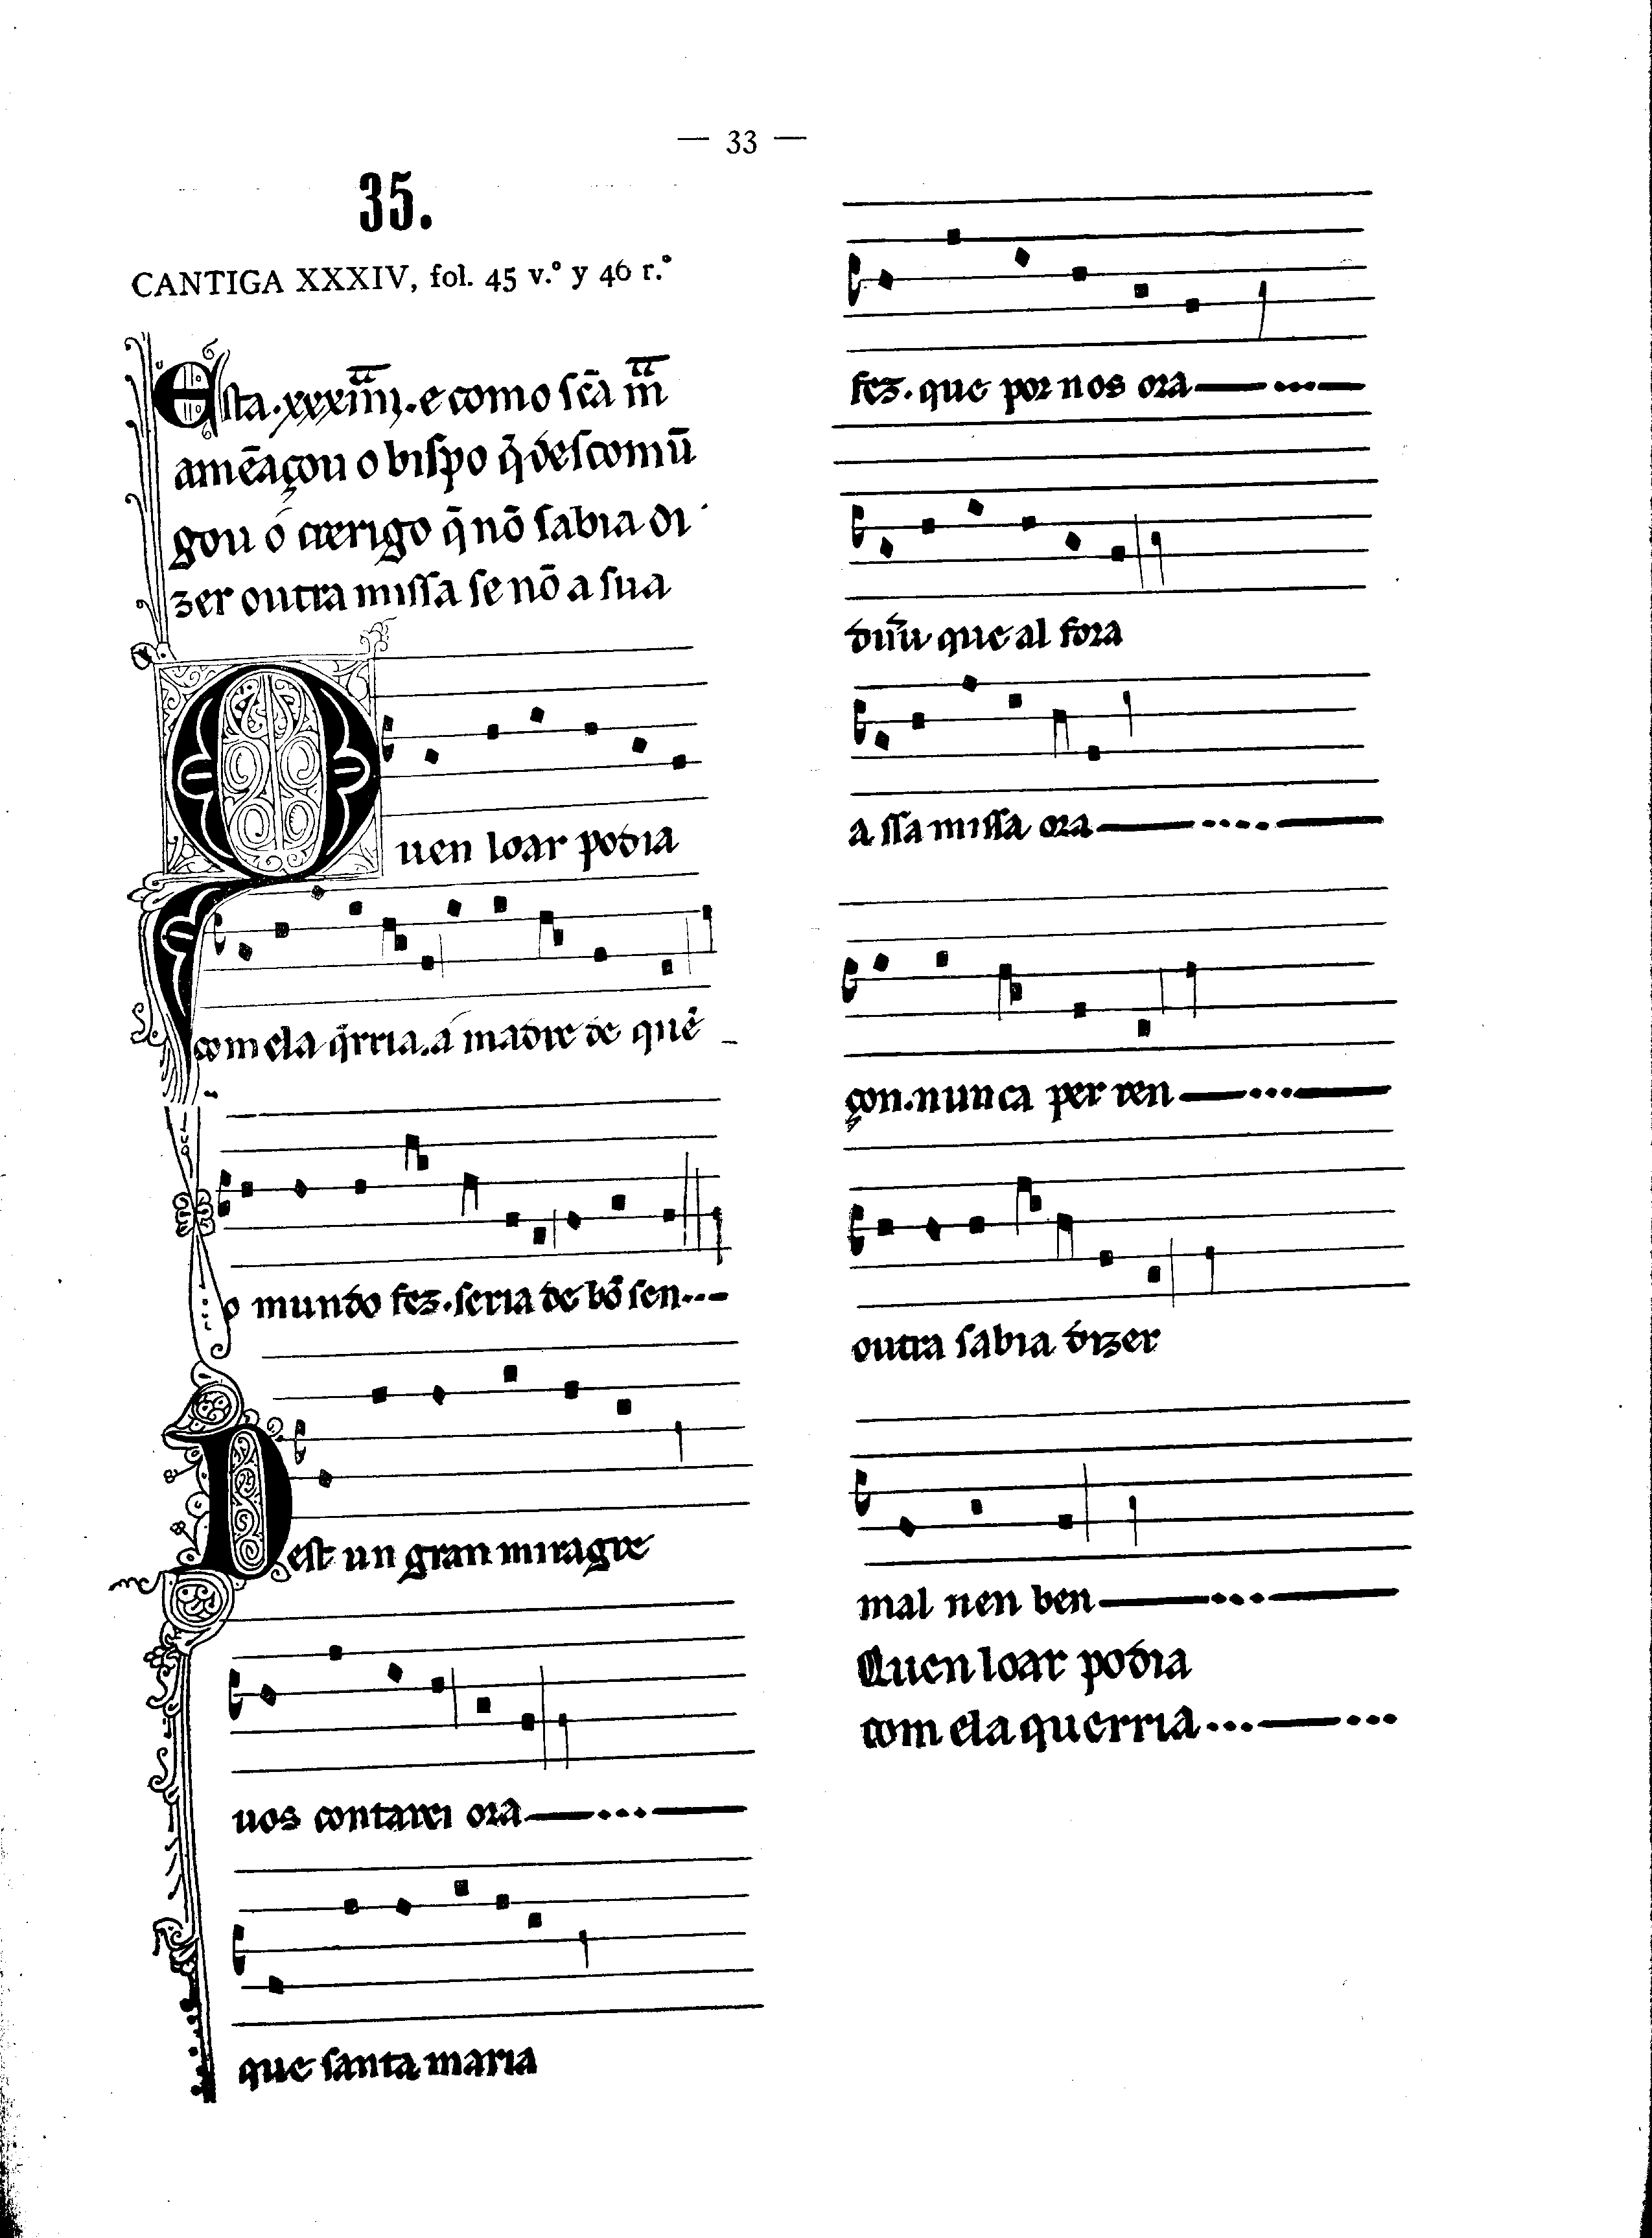 — 33 —
35.
CANTIGA XXXIV, fol. 45 v.º y 46 r.º
Esta.xxxiiij.e como sc̄a m̄
amēaçou o bispo q̄ descomū
gou o crerigo q̄ nō sabia di
zer outra missa se nō a sua
Quen loar podia
com ela q̇rria.a madre de quē
o mundo fez.seria de bō sen
Dest un gran miragre
uos contarei ora
que santa maria
fez.que por nos ora
dun que al fora
a ssa missa ora
çon.nunca per ren
outra sabia dizer
mal nen ben
Quen loar podia
com ela querria